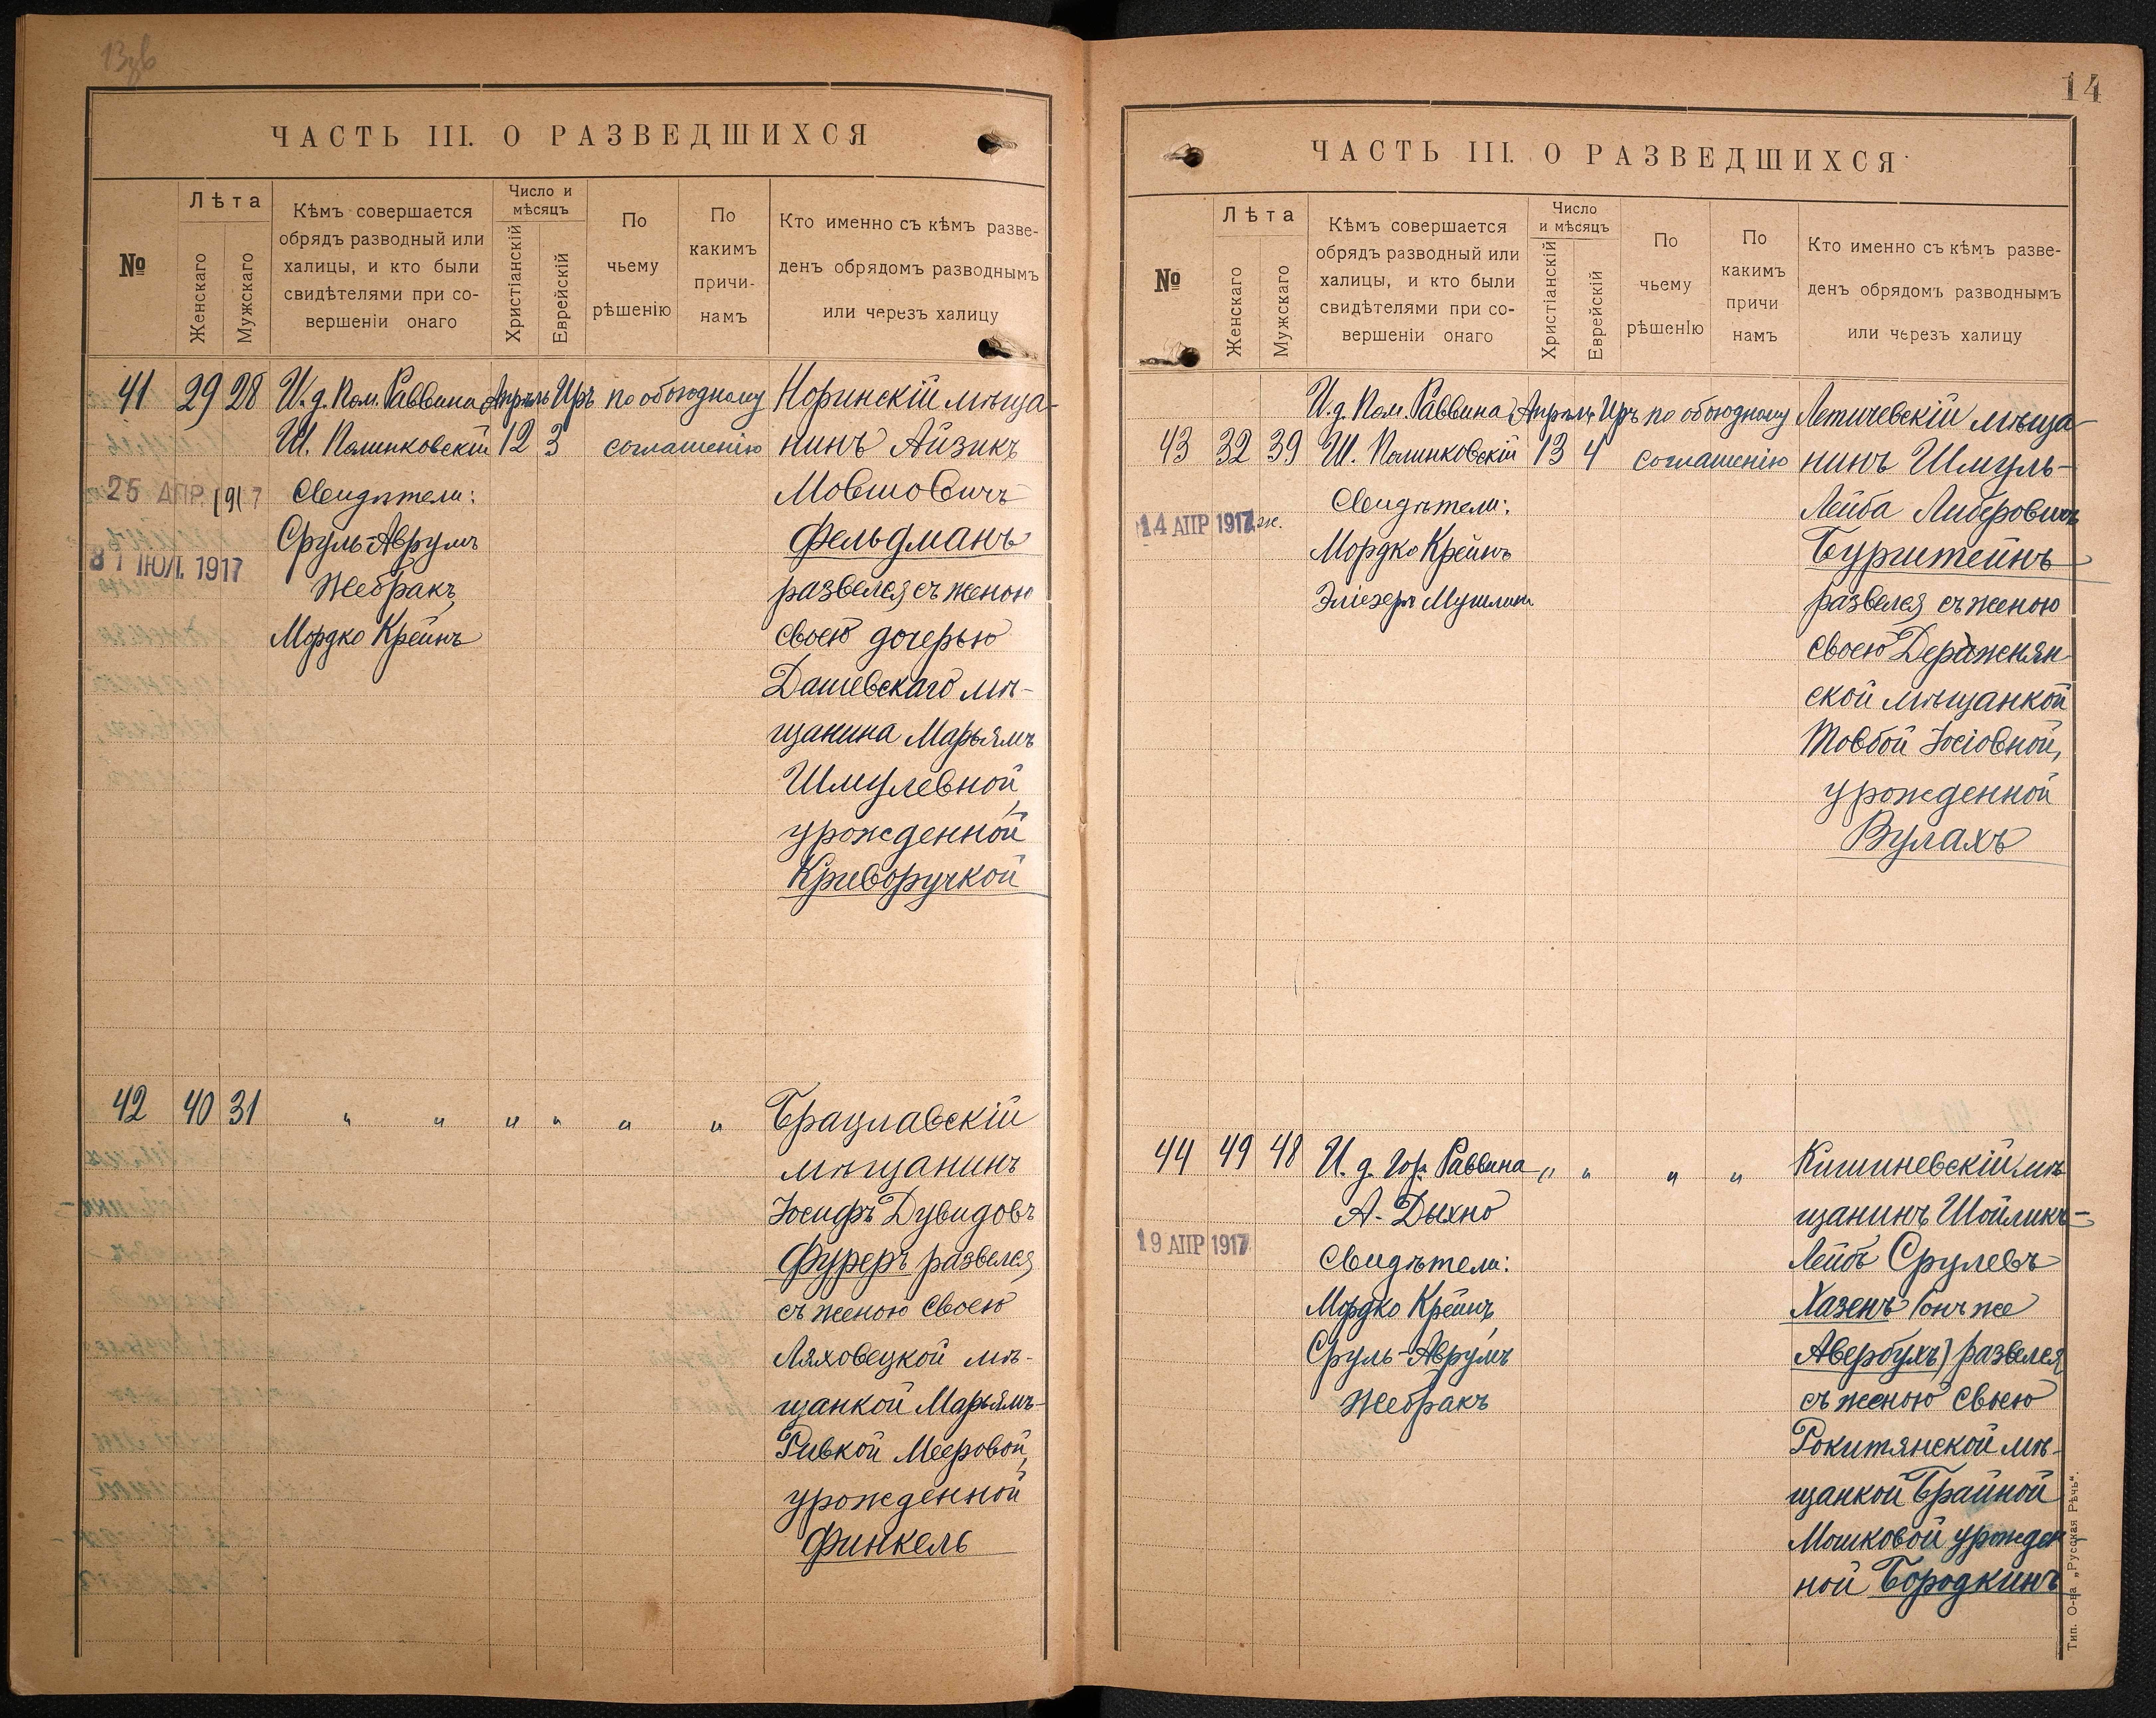 13зв
ЧАСТЬ III. О РАЗВЕДШИХСЯ
№
Лѣта
Женскаго
Мужскаго
Кѣмъ совершается
обрядъ разводный или
халицы, и кто были
свидѣтелями при со-
вершеніи онаго
Число и
мѣсяцъ
Христіанскій
Еврейскій
По
чьему
рѣшенію
По
какимъ
причи-
намъ
Кто именно съ кѣмъ разве-
денъ обрядомъ разводнымъ
или черезъ халицу
41 29 28 И. д. Пом. Раввина Апрѣль Иръ по обоюдному Норинскій мѣща-
Ш. Полинковскій 12 3 соглашенію нинъ Айзикъ
25 АПР. 1917 Свидѣтели: Мовшовичъ
Сруль-Аврумъ Фельдманъ
31 ІЮЛ. 1917 Жебракъ, развелся съ женою
Мордко Крейнъ своею дочерью
Дашевскаго мѣ-
щанина Марьямъ
Шмулевной,
урожденной
Криворучкой
42 40 31 " " " " " " Брацлавскій
мѣщанинъ
Іосифъ Дувидовъ
Фуреръ развелся
съ женою своею
Ляховецкой мѣ-
щанкой Марьямъ-
Ривкой Мееровой,
урожденной
Финкель
14
ЧАСТЬ III. О РАЗВЕДШИХСЯ
№
Лѣта
Женскаго
Мужскаго
Кѣмъ совершается
обрядъ разводный или
халицы, и кто были
свидѣтелями при со-
вершеніи онаго
Число
и мѣсяцъ
Христіанскій
Еврейскій
По
чьему
рѣшенію
По
какимъ
причи
намъ
Кто именно съ кѣмъ разве-
денъ обрядомъ разводнымъ
или черезъ халицу
И. д. Пом. Раввина Апрѣль Иръ по обоюдному Летичевскій мѣща-
43 32 39 Ш. Полинковскій 13 4 соглашенію нинъ Шмуль-
Свидѣтели: Лейба Либеровичъ
14 АПР 1917 ж. Мордко Крейнъ Бурштейнъ
Эліезеръ Мушлин развелся съ женою
своею Деражнян-
ской мѣщанкой
Товбой Іосіовной,
урожденной
Вулахъ
44 49 48 И. д. Гор. Раввина " " " " Кишиневскій мѣ-
А. Дыхно щанинъ Шойликъ-
19 АПР 1917 Свидѣтели: Лейбъ Срулевъ
Мордко Крейнъ, Хазенъ (онъ же
Сруль-Аврумъ Авербухъ) развелся
Жебракъ съ женою своею
Рокитянской мѣ-
щанкой Брайной
Мошковой урожден-
ной Бородкинъ
Тип. О-ва „Русская Рѣчь".